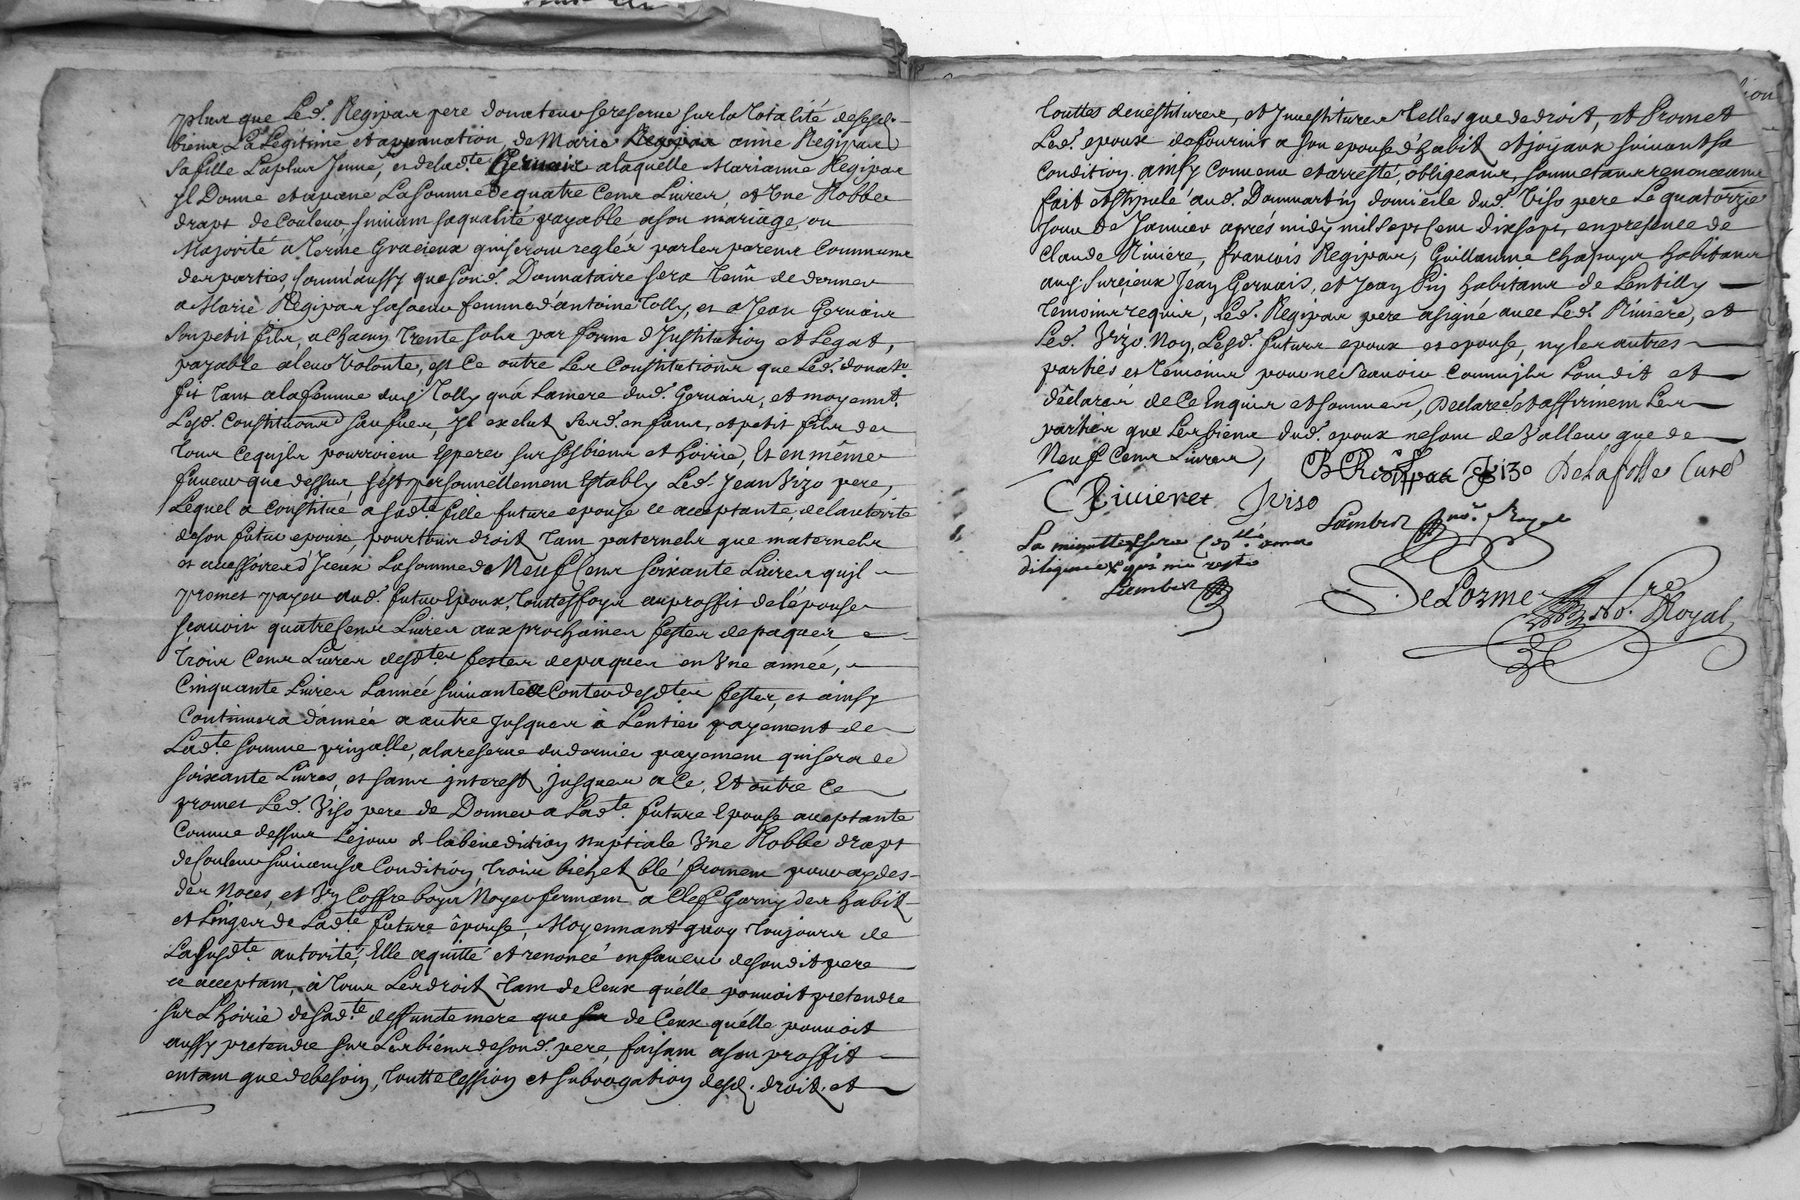 plus que Led. Regipas pere donateur se reserve sur la totalité de ses
biens La Legitime et appanation, de Marie anne Regipas
sa fille La plus Jeune, et de lad.te Gervais a laquelle Marianne Regipas
Jl Donne et apane La somme de quatre Cens Livres, et Une Robbe
drapt de Couleur, suivant sa qualité payable a son mariage, ou
Majorité a Terme Gracieux qui seront reglés par les parens Communs
des parties, comm'aussy que sond. Donnataire sera Tenû de donner
a Marie Regipas sa soeur femme d'antoine Tolly, et a Jean Gervais
son petit fils, a chacun Trente sols par forme d'Jnstitution et Legat,
payable a leur Volonté, et Ce outre Les Constitutions que Led. donat.r
fit Tant a la femme dud. Tolly qu'a Lamere dud. Gervais, et moyenn.t
Lesd. Constitutions sausues, Jl exclut sesd. enfans, et petit fils de
Tous Ce qu'jls pourroient Esperer sur ses biens et hoirie, Et en même
faveur que dessus, s'est personnellement Estably Led. Jean Vizo pere,
Lequel a Constitué a sad.te fille future epouse ce acceptante, de l'autorité
de son futur epoux pour tous droits Tant paternels que maternels
et accessoires d'Jceux La somme de Neuf Cens soixante Livres qu'jl
promet payer aud. futur Epoux, touttesfoys au proffit de l'épouse
sçavoir quatre Cens Livres aux prochaines festes de paques
Trois Cens Livres desd.tes festes de paques en Une année,
Cinquante Livres L'année suivante a Conter desd.tes festes, et ainsy
Continuera d'année a autre Jusques à L'entier payement de
Lad.te somme prin.alle, a la reserve du dernier payement qui sera de
soixante Livres, et sans jnterest jusques a Ce, Et outre Ce
promet Led. Viso pere de Donner a Lad.te future Epouse acceptante
Comme dessus Le jour de la benediction nuptiale Une Robbe drapt
de Couleur suivant sa Condition, Trois bichet blé froment pour aydes
des Noces, et Un Coffre boys Noyer fermant a Clef Garny des habits
et Linges de Lad.te future épouse, Moyennant quoy Toujours de
La susd.te autorité, Elle a quitté et renoncé en faveur de sondit pere
ce acceptant, à Tous Les droits Tant de Ceux qu'elle pouvoit pretendre
sur L'hoirie de sad.te deffunte mere que de Ceux qu'elle pouvoit
aussy pretendre sur Les biens de sond. pere, faisant a son proffit
entant que de besoin, Toutte Cession et subrogation desd. droits et
Touttes devestitures, et Jnvestitures Telles que de droit, et Promet
Led. epoux de fournir a son epouse d'habits et joyaux suivant sa
Condition. ainsy Convenu et arresté, obligeans, soumettans renonceans
fait et stipulé aud. Dommartin domicile dud. Viso pere Le quatorzie
jour de Janvier apres midy mil sept Cens dix sept, en presence de
Claude Riviere, francois Regipas, Guillaume Chapuys habitans
aud. Surcieux Jean Gervais, et Jean Pin habitans de Lentilly
Temoins requis, Led. Regipas pere a signé avec Led. Riviere, et
Led. Vizo. Non, Lesd. futurs epoux et epouse, ny les autres
parties et Temoins pour ne sçavoir Comm'jls L'ont dit et
déclaré de Ce Enquis et sommés, Declarent et affirment Les
parties que Les biens dud. epoux ne sont de Valleur que de
Neuf Cens Livres,
B Regipas J Vizo Delafosse Curé
C Riviere J viso
Lambert no.re Royal
La minutte
diligence qui m'a resté
Lambert
DeLorme No.re Royal